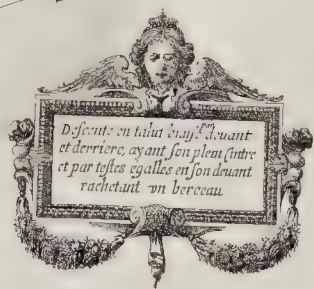 Descente en talut biayé par deuant
et derriere, ayant son plein Cintre
et par testes egalles en son deuant
rachetant vn berceau